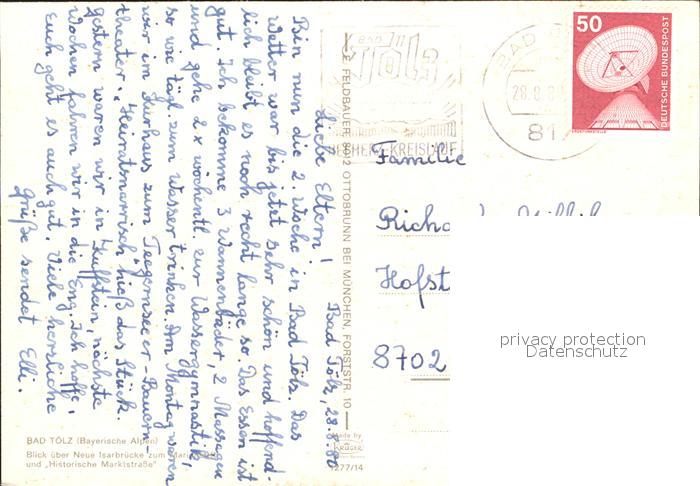 Bad Tölz, 28.8.80
Liebe Eltern!
Bin nun die 2. Woche in Bad Tölz. Das
Wetter war bis jetzt sehr schön und hoffent-
lich bleibt es noch recht lange so. Das Essen ist
gut. Ich bekomme 3 Wannenbäder, 2 Massagen
und gehe 2 x wöchentl. zur Wassergymnastik,
so wie tägl. zum Wasser trinken. Am Montag waren
wir im Kurhaus zum Tegernseer-Bauern-
theater. "Heiratsnarrisch" hieß das Stück.
Gestern waren wir in Kuffstein, nächste
Wochen fahren wir in die Eng. Ich hoffe,
Euch geht es auch gut. Viele herzliche
Grüße sendet Elli.
BAD TÖLZ (Bayerische Alpen)
Blick über Neue Isarbrücke zum
und „Historische Marktstraße"
FELDBAUER, 8012 OTTOBRUNN BEI MÜNCHEN, FORSTSTR. 10
made by
KRÜGER
1277/14
BAD
Tölz
HERZ-KREISLAUF
BAD
28.8.8
817
50
DEUTSCHE BUNDESPOST
Familie
Hofst
8702
privacy protection
Datenschutz